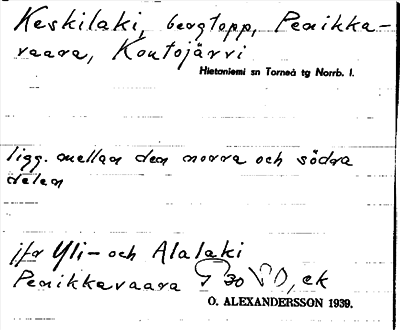 Keskilaki, bergtopp, Penikka-
vaara, Koutojärvi
Hietaniemi sn Torneå tg Norrb. l.
ligg. mellan den norra och södra
delen
jfr Yli- och Alalaki
Penikkavaara 30 ek
O. ALEXANDERSSON 1939.